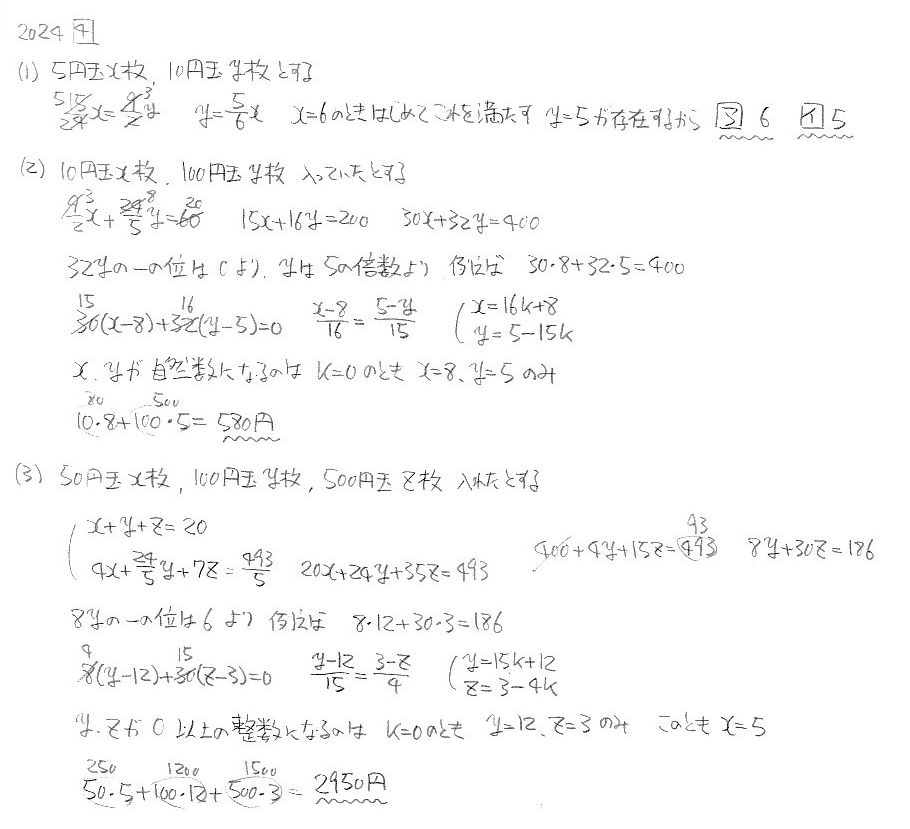 2024 4
(1) 5円玉x枚, 10円玉y枚とする
15/24 x = 9/2 y  y = 5/6 x  x=6のときはじめてこれを満たす y=5が存在するから 3 6  イ 5
(2) 10円玉x枚, 100円玉y枚 入っていたとする
9/2 x + 24/5 y = 60  15x+16y=200  30x+32y=400
32yの一の位は0より, yは5の倍数より 例えば 30・8+32・5=400
30(x-8)+32(y-5)=0  (x-8)/16 = (5-y)/15  { x=16k+8
y=5-15k
x, yが自然数になるのは k=0のとき x=8, y=5のみ
10・8+100・5= 580円
(3) 50円玉x枚, 100円玉y枚, 500円玉z枚 入れたとする
{ x+y+z=20
4x + 24/5 y + 7z = 493/5  20x+24y+35z=493  400+4y+15z=493  8y+30z=186
8yの一の位は6より 例えば 8・12+30・3=186
8(y-12)+30(z-3)=0  (y-12)/15 = (3-z)/4  { y=15k+12
z=3-4k
y, zが0以上の整数になるのは k=0のとき y=12, z=3のみ このとき x=5
250 1200 1500
50・5+100・12+500・3 = 2950円